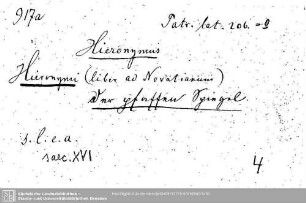 917a
Patr. lat. 206. = 9
Hieronymus
Hieronymi (liber ad Novatianum)
Der pfaffen Spiegel
s. l. e. a.
saec. XVI
4
Sächsische Landesbibliothek -
Staats- und Universitätsbibliothek Dresden